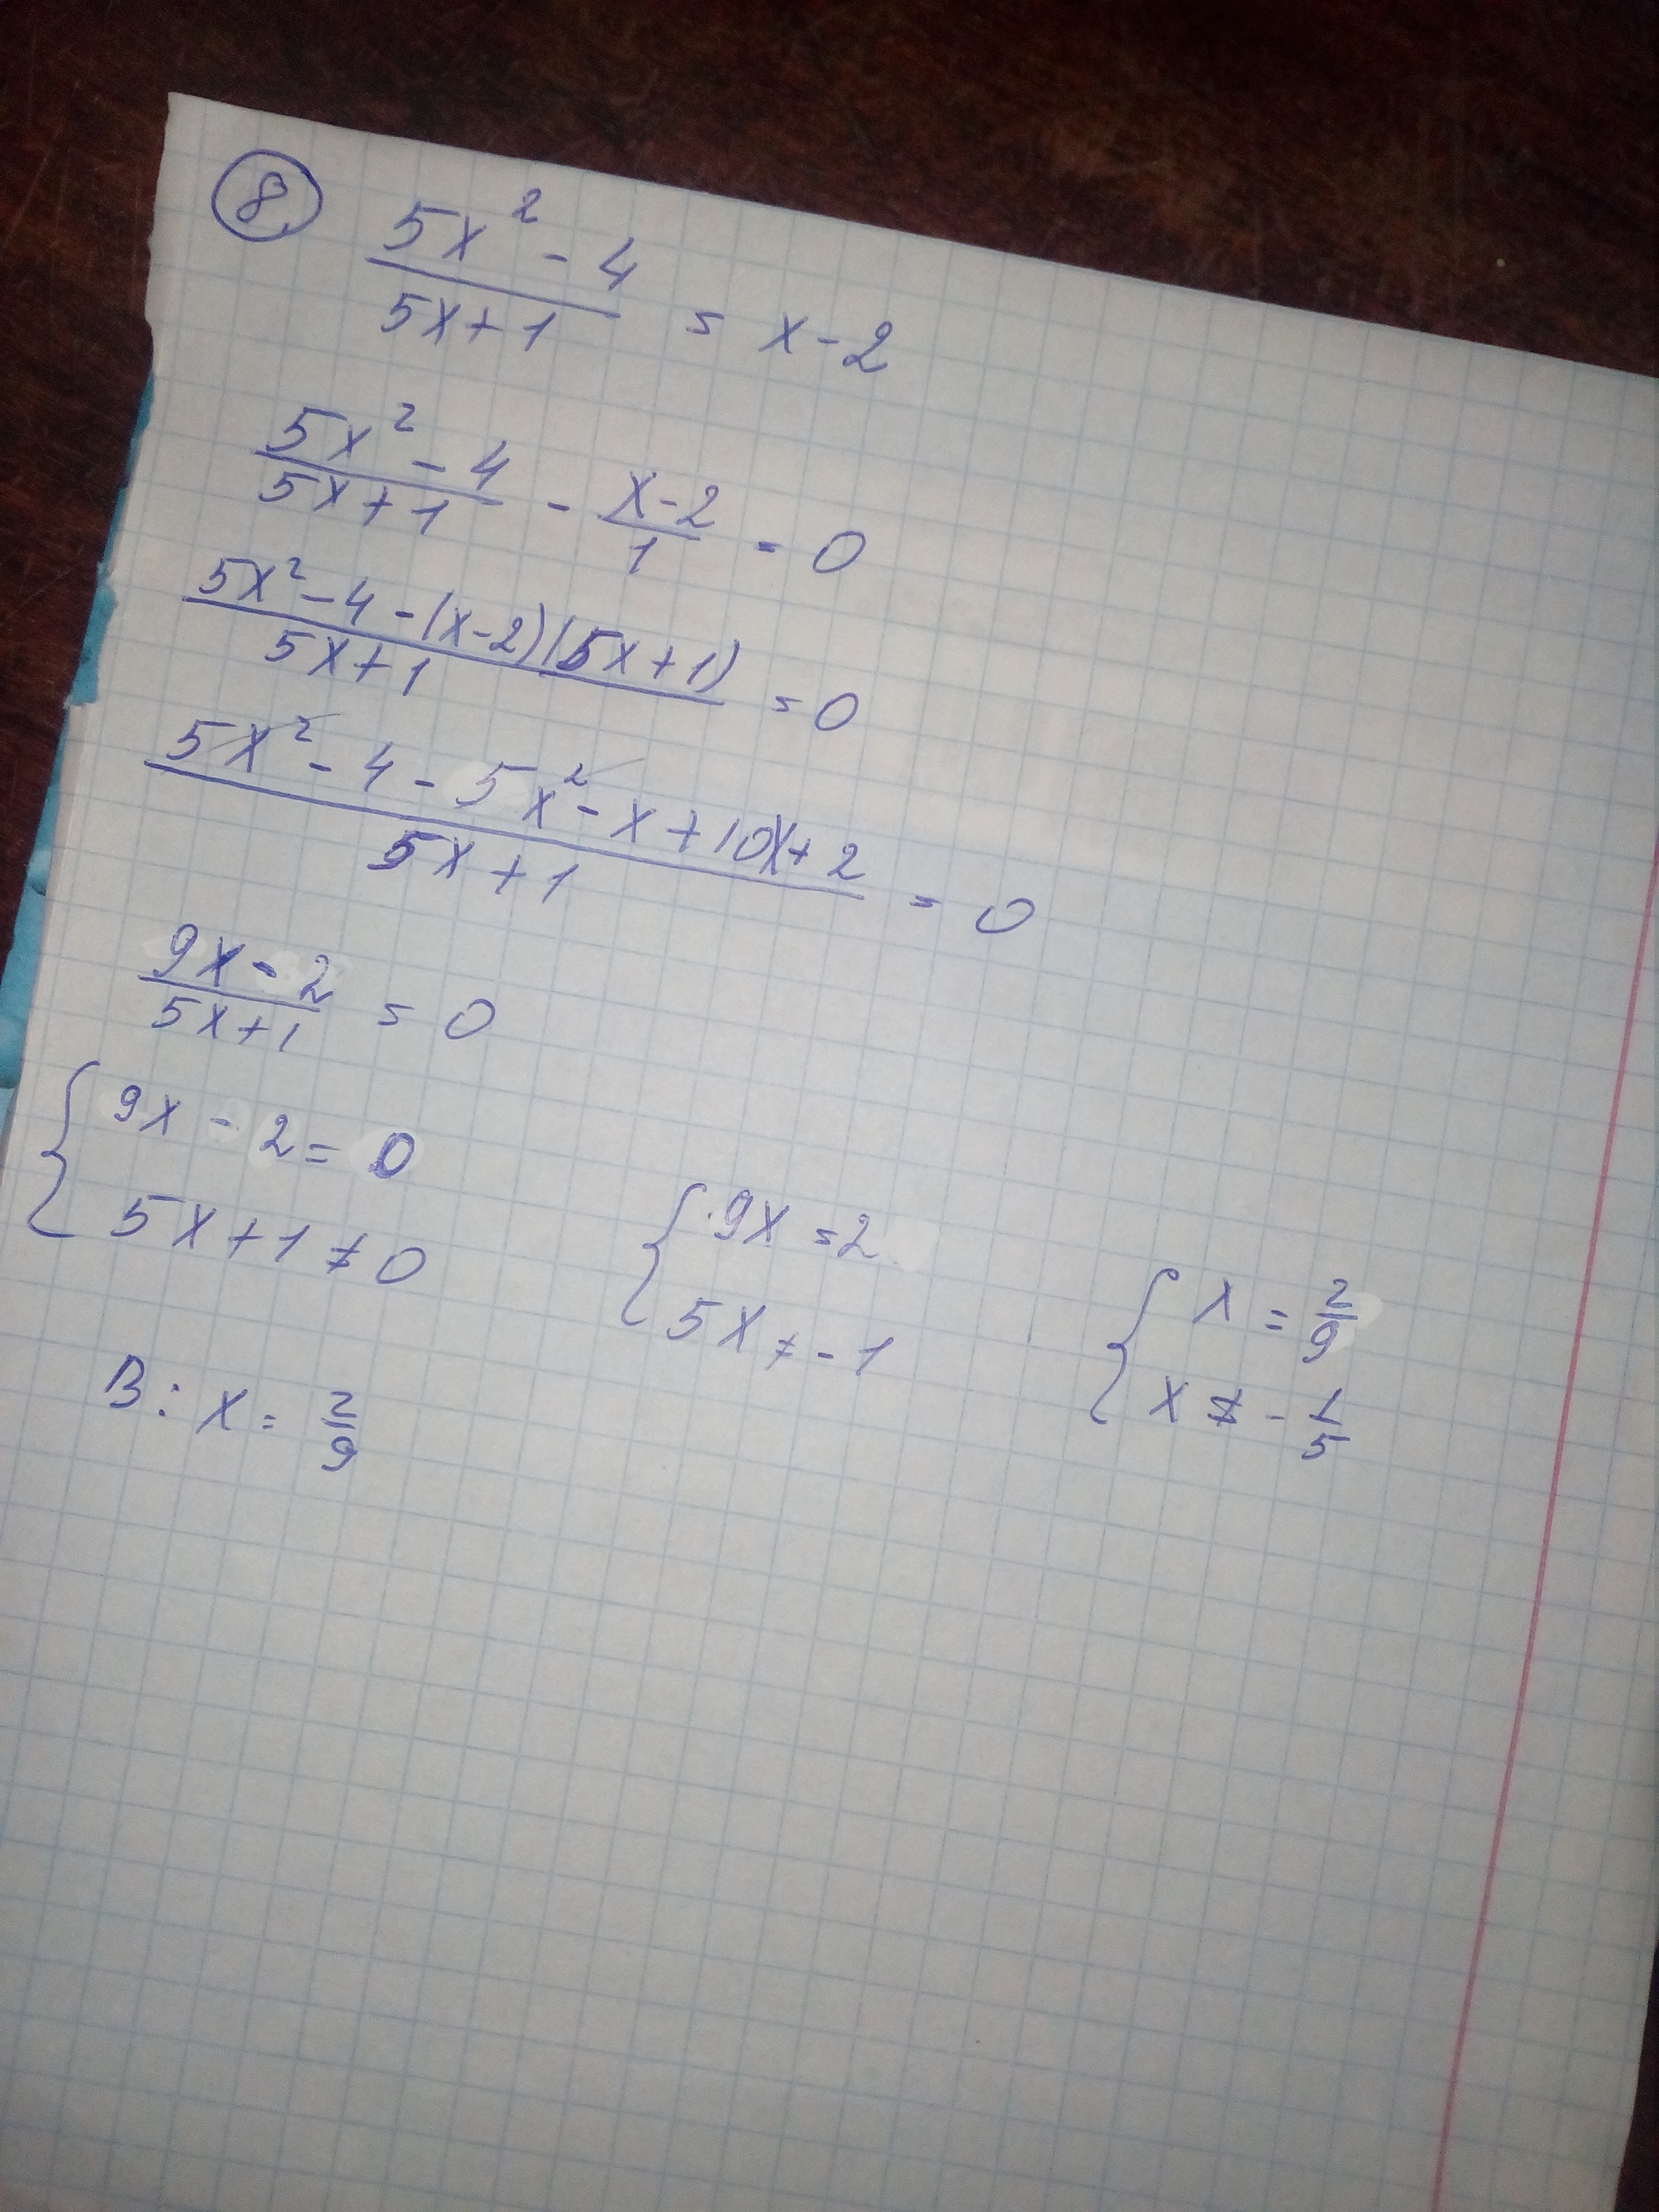 8
5x² - 4 / 5x + 1 = x - 2
5x² - 4 / 5x + 1 - x - 2 / 1 = 0
5x² - 4 - (x - 2)(5x + 1) / 5x + 1 = 0
5x² - 4 - 5x² - x + 10x + 2 / 5x + 1 = 0
9x - 2 / 5x + 1 = 0
{ 9x - 2 = 0
5x + 1 ≠ 0
{ 9x = 2
5x ≠ -1
{ x = 2/9
x ≠ - 1/5
В: x = 2/9